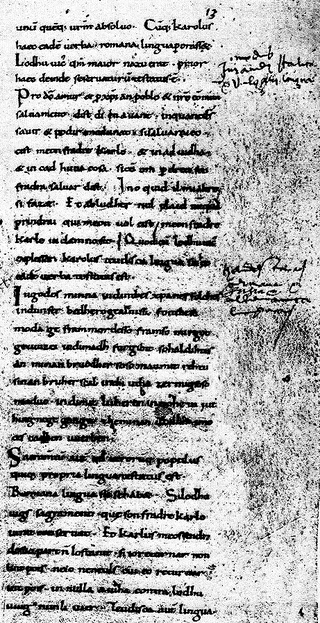 13
unu quęq; urm absoluo. Cumq; karolus
haec eade uerba romana lingua perorasset.
Lodhuuic qm maior natu erat. prior
haec deinde se seruaturu testatus e.
Pro do amur & p xpian poblo & nro comun
saluament. dist di in auant. inquant ds
sauir & podir me dunat. si saluarai eo.
cist meon fradre karlo. & in aiudha
& in cad huna cosa. sicu om p dreit son
fradra saluar dist. Ino quid il mi altre
si fazet. Et ab ludher nul plaid nuqua
prindrai qui meon uol cist meon fradre
karle in damno sit. Quod cu lodhuuic
explesset. karolus teudisca lingua sic hec
eade uerba testatus est.
In godes minna indinthes xpanes folches
indunser bedhero gealtnissi. fonthese
moda ge frammordesso framso mirgot
geuuizci indimadh furgibit sohaldihtes
an minan bruodher soso manmit rehtu
sinan bruher scal inthi utha zermigsoso
maduo. indimit luheren in noheiniut
hing nege gango. zheminan uuillon imo
ce scadhen uuerhen.
Sacramentu aut qd utrorumq; populus
quiq; propria lingua testatus est.
Romana lingua sic se habet. Silodhu
uigs sagrament. que son fradre karlo
iurat conseruat. Et karlus meossendra
desuo partn lostanit. si ioreturnar non
lint pois. neio neneuls cuieo returnar
int pois. in nulla aiudha contra lodhu
uuig nunli iuer. Teudisca aut lingua